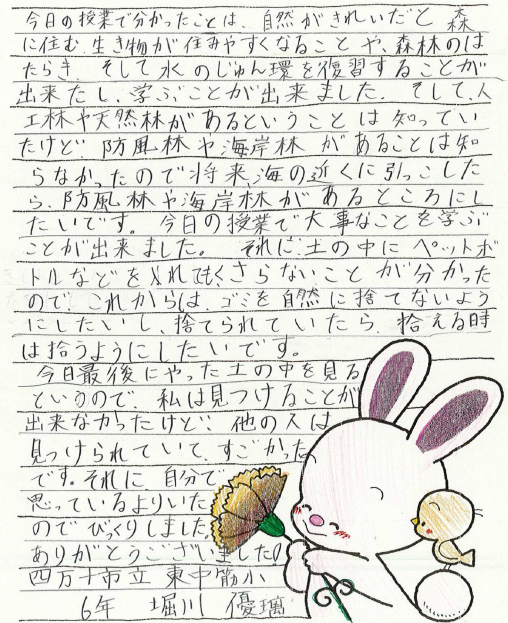 今日の授業で分かったことは、自然がきれいだと森
に住む生き物が住みやすくなることや、森林のは
たらき、そして水のじゅん環を復習することが
出来たし、学ぶことが出来ました。そして、人
工林や天然林があるということは知ってい
たけど、防風林や海岸林があることは知
らなかったので将来、海の近くに引っこした
ら、防風林や海岸林があるところにし
たいです。今日の授業で大事なことを学ぶ
ことが出来ました。それに、土の中にペットボ
トルなどを入れてもくさらないことが分かった
ので、これからは、ゴミを自然に捨てないよう
にしたいし、捨てられていたら、拾える時
は拾うようにしたいです。
今日最後にやった土の中を見る
というので、私は見つけることが
出来なかったけど、他の人は
見つけられていて、すごかった
です。それに自分で
思っているよりいた
のでびっくりしました。
ありがとうございました!
四万十市立東中筋小
6年 堀川 優璃